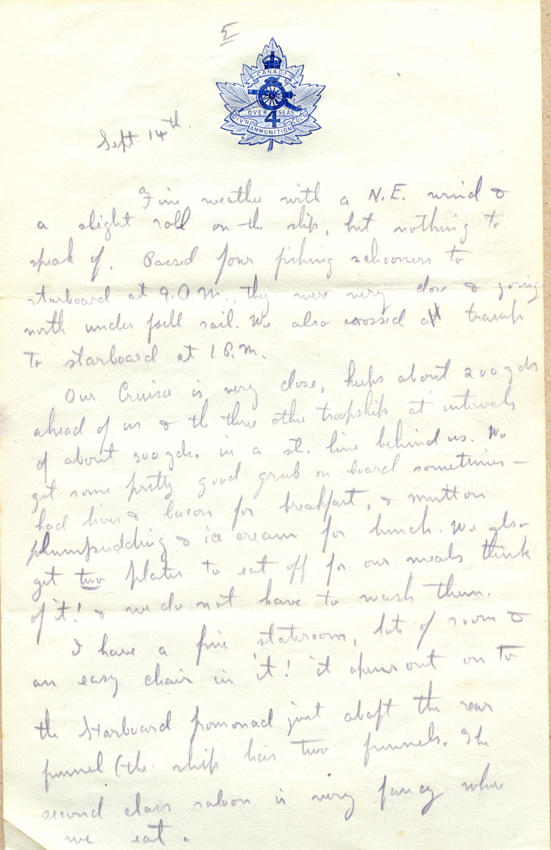 5
CANADA
OVER SEAS
4
DIV'N AMMUNITION COL'N
Sept. 14th
Fine weather with a N.E. wind &
a slight roll on the ship, but nothing to
speak of. Passed four fishing schooners to
starboard at 9.A.M., they were very close & going
north under full sail. We also crossed a tramp
to starboard at 1 P.M.
Our Cruiser is very close, keeps about 200 yds
ahead of us & the three other troopships at intervals
of about 300 yds. in a st. line behind us. We
get some pretty good grub on board sometimes —
had liver & bacon for breakfast, & mutton
plumpudding & ice cream for lunch. We also
get two plates to eat off for our meals think
of it! & we do not have to wash them.
I have a fine stateroom, lots of room &
an easy chair in it! it opens out on to
the starboard promonad just abaft the rear
funnel (the ship has two funnels. The
second class saloon is very fancy where
we eat.